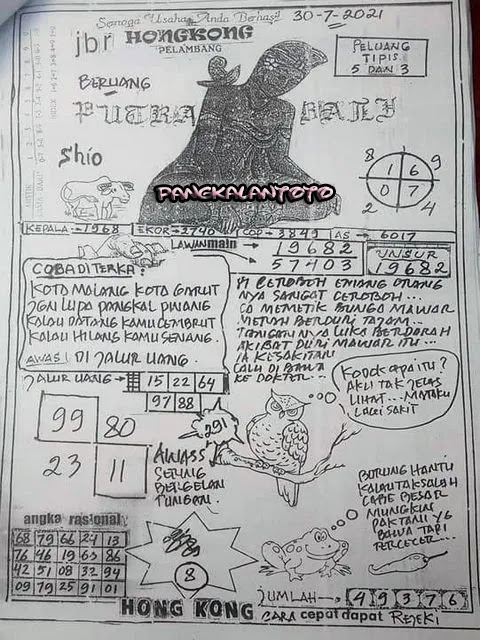 Semoga Usaha Anda Berhasil 30-7-2021
jbr HONGKONG
PELAMBANG
PELUANG
TIPIS
5 DAN 3
BERUANG
PUTRA BALI
Shio
PANGKALANTOTO
8 9
1 6
0 7
2 4
KEPALA → 1968 EKOR → 2740 COP → 3849 AS → 6017
LAWAN main → 19682
→ 57403
UNSUR
19682
COBA DITERKA :
KOTO MALANG KOTA GARUT
JGN LUPA PANGKAL PINANG
KALAU DATANG KAMU CEMBRUT
KALAU HILANG KAMU SENANG.
AWAS! DI JALUR UANG.
SI CEROBOH EMANG ORANG
NYA SANGAT CEROBOH...
MEMETIK BUNGA MAWAR
MERAH BERDURI TAJAM..
TANGAN NYA LUKA BERDARAH
AKIBAT DURI MAWAR ITU...
IA KESAKITAN
LALU DI BAWA
KE DOKTER...
JALUR UANG → 15 22 64
97 88
291
KODOK APA ITU?
AKU TAK JELAS
LIHAT... MATAKU
LAGI SAKIT
99 80
23 11
AWASS
SERING
BERGELAN
TUNGAN.
BURUNG HANTU
KALAU TAK SALAH
CABE BESAR
MUNGKIN
PAK TANI YG
BAWA TAPI
TERCECER...
angka rasional
68 79 66 24 13
76 46 19 63 86
42 51 08 32 94
09 79 25 91 01
8
JUMLAH → 4 9 3 7 6
HONG KONG CARA cepat dapat REJEKI